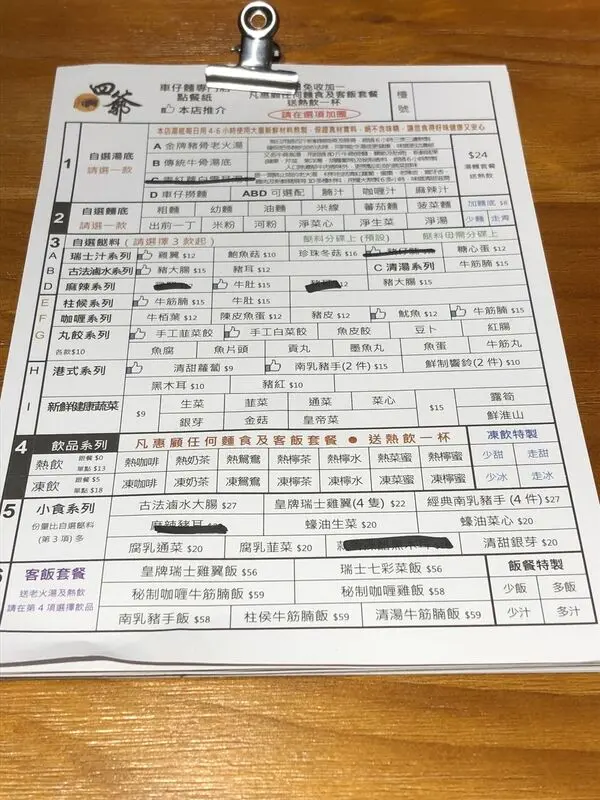 四爺
車仔麵專門店
點餐紙
本店推介
免收加一
凡惠顧任何麵食及客飯套餐
送熱飲一杯
請在選項加圈
檯號
1 自選湯底 請選一款
A 金牌豬骨老火湯
B 傳統牛骨湯底
D 車仔撈麵 ABD 可選配 腩汁 咖喱汁 麻辣汁
$24
湯麵套餐
送熱飲
2 自選麵底 請選一款
粗麵 幼麵 油麵 米線 蕃茄麵 菠菜麵 加麵底 $8
出前一丁 米粉 河粉 淨菜心 淨生菜 淨湯 少麵 走青
3 自選餸料 (請選擇 3 款起) 餸料分碟上 (預設) 餸料毋需分碟上
A 瑞士汁系列 雞翼 $12 鮑魚菇 $10 珍珠冬菇 $16 糖心蛋 $12
B 古法滷水系列 豬大腸 $15 豬耳 $12 C 清湯系列 牛筋腩 $15
D 麻辣系列 牛肚 $15 豬大腸 $15
E 柱候系列 牛筋腩 $15 牛肚 $15
F 咖喱系列 牛栢葉 $12 陳皮魚蛋 $12 豬皮 $12 魷魚 $12 牛筋腩 $15
G 丸餃系列 手工韮菜餃 手工白菜餃 魚皮餃 豆卜 紅腸
各款$10 魚腐 魚片頭 貢丸 墨魚丸 魚蛋 牛筋丸
H 港式系列 清甜蘿蔔 $9 南乳豬手 (2 件) $15 鮮制響鈴 (2 件) $10
黑木耳 $10 豬紅 $10
I 新鮮健康蔬菜 $9 生菜 韮菜 通菜 菜心 $15 露筍
銀芽 金菇 皇帝菜 鮮淮山
4 飲品系列 凡惠顧任何麵食及客飯套餐 ● 送熱飲一杯 凍飲特製
熱飲 跟餐 $0 單點 $13 熱咖啡 熱奶茶 熱鴛鴦 熱檸茶 熱檸水 熱菜蜜 熱檸蜜 少甜 走甜
凍飲 跟餐 $5 單點 $18 凍咖啡 凍奶茶 凍鴛鴦 凍檸茶 凍檸水 凍菜蜜 凍檸蜜 少冰 走冰
5 小食系列 古法滷水大腸 $27 皇牌瑞士雞翼 (4 隻) $22 經典南乳豬手 (4 件) $27
份量比自選餸料 (第 3 項) 多 麻辣豬耳 蠔油生菜 $20 蠔油菜心 $20
腐乳通菜 $20 腐乳韮菜 $20 清甜銀芽 $20
6 客飯套餐 皇牌瑞士雞翼飯 $56 瑞士七彩菜飯 $56 飯餐特製
送老火湯及熱飲 秘制咖喱牛筋腩飯 $59 秘制咖喱雞翼飯 $58 少飯 多飯
請在第 4 項選擇飲品 南乳豬手飯 $58 柱侯牛筋腩飯 $59 清湯牛筋腩飯 $59 少汁 多汁